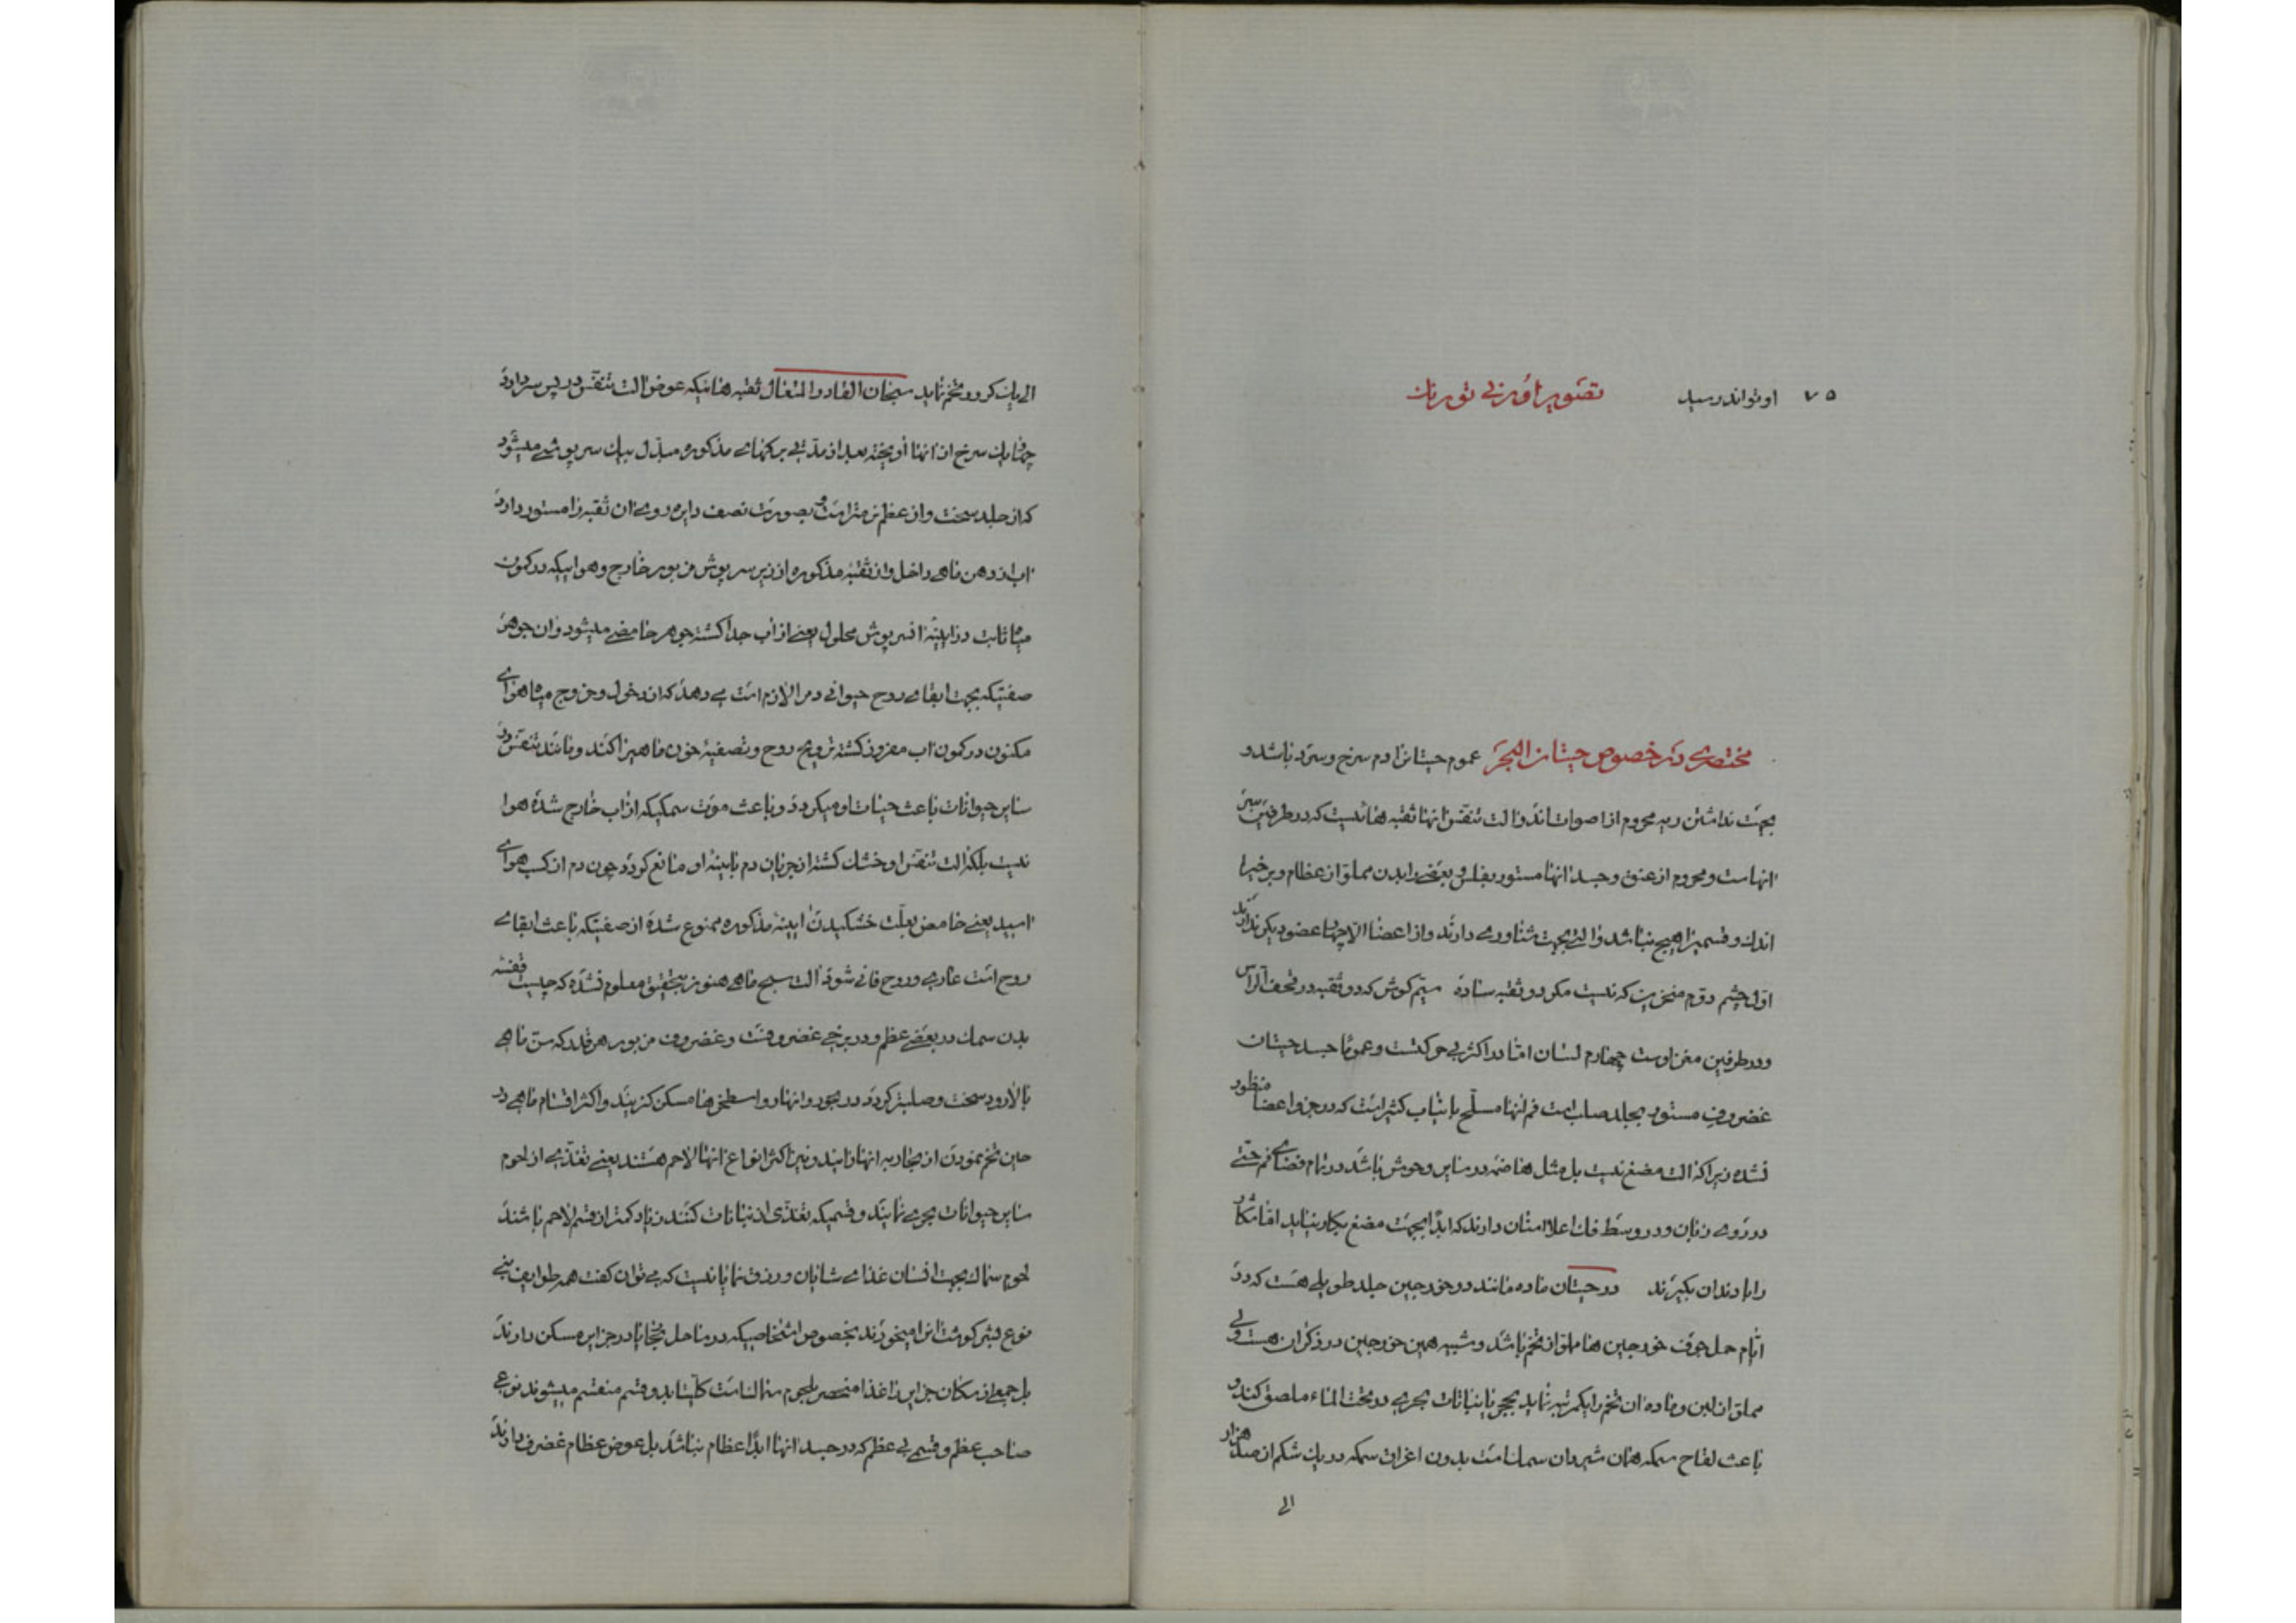 ۷۵ او تواند رسید تصویر
مختصری در خصوص حیتان البحر عموم حیتانرا دم سرخ و سرد باشد و
بجهت نداشتن ریه محروم از اصوات اند و الت تنفس انها ثقبه هائیست که در طرفین سر
انهاست و محروم از عنق و جسد انها مستور بفلس و بعضی را بدن مملو از عظام و برخیرا
اندک و قسمیرا هیچ نباشد و التی بجهت شناوری دارند و از اعضا الا چهار عضو دیگر ندارند
اول چشم دوم منخرین که نیست مگر دو ثقبه ساده سیم گوش که دو ثقبه در قحف الراس
و در طرفین مغز اوست چهارم لسان اما در اکثر بی حرکتست و عموما جسد حیتان
غضروف مستور بجلد صاب است فم انها مسلح بانیاب کثیر است که در جزو اعضا منظور
نشده زیرا که الت مضغ نیست بل مثل هاضمه در سایر وحوش باشد در تمام فضای فم حتی
در روی زبان و در وسط فک اعلا اسنان دارند که ابدا بجهت مضغ بکار نیاید اما شکار
را با دندان بگیرند در حیتان ماده مانند دو خورجین جلد طویلی هست که در
ایام حمل جوف خورجین ها مملو از تخم باشد و شبیه همین خورجین در ذکران هست ولی
مملو از لبن و ماده ان تخم را یکمرتبه بحجر یا بنباتات بحری در تحت الماء ملصق کند و
باعث لقاح سمکه همان شیردان سمک است بدون اغراق سمکه در یک شکم از صد هزار
الی
الی یک کرور تخم نماید سبحان القادر المتعال ثقبه هائیکه عوض الت تنفس در پس سر دارد
سرخ از انها اویخته بعد از مدتی برگهای مذکوره مبدل بیک سرپوشی میشود
که از جلد سخت و از عظم نرمتر است و بصورت نصف دایره روی ان ثقبه را مستور دارد
اب از دهن ماهی داخل و از ثقبه مذکوره از زیر سرپوش مزبور خارج و هوائیکه در کمون
میاه ثابت در ابنیه سرپوش محلول یعنی از اب جدا گشته جوهر حامضی میشود و ان جوهر
صفتیکه بجهت ابقای روح حیوانی در مر الازم است می دهد که از دخول و خروج میاه هوای
مکنون در کمون اب مفروز گشته ترویح روح و تصفیه خون ماهیرا کند و مانند تنفس در
سایر حیوانات باعث حیات او میگردد و باعث موت سمکیکه از اب خارج شده هوا
نیست بلکه الت تنفس او خشک گشته از جریان دم بابنیه او مانع گردد چون دم از کسب هوای
اسید یعنی حامض بعلت خشکیدن ابنیه مذکوره ممنوع شده از صفتیکه باعث ابقای
روح است عاری و روح فانی شود الت سبح ماهی هنوز بتحقیق معلوم نشده که چیست قفسه
بدن سمک در بعضی عظم و در برخی غضروفست و غضروف مزبور هر قدر که سن ماهی
بالا رود سخت و صلبتر گردد در بحور و انهار و اسطخرها مسکن گزینند و اکثر اقسام ماهی در
حین تخم نمودن از بحار به انهار ایند و نیز اکثر انواع انها لاحم هستند یعنی تغذی از لحوم
سایر حیوانات بحری نمایند و قسمیکه تغذی از نباتات کنند زیاد کمتر از قسم لاحم باشند
لحوم سماک بجهت انسان غذای شایان و رزق نمایانیست که می توان گفت همه طوایف بنی
نوع بشر گوشت انرا میخورند بخصوص اشخاصیکه در ساحل بحار یا در جزایر مسکن دارند
بل جمعی از سکان جزایر را غذا منحصر بلحوم سمک است کلیتا بدو قسم منقسم میشوند نوعی
صاحب عظم و قسمی بی عظم که در جسد انها ابدا عظام نباشد بل عوض عظام غضروف دارند